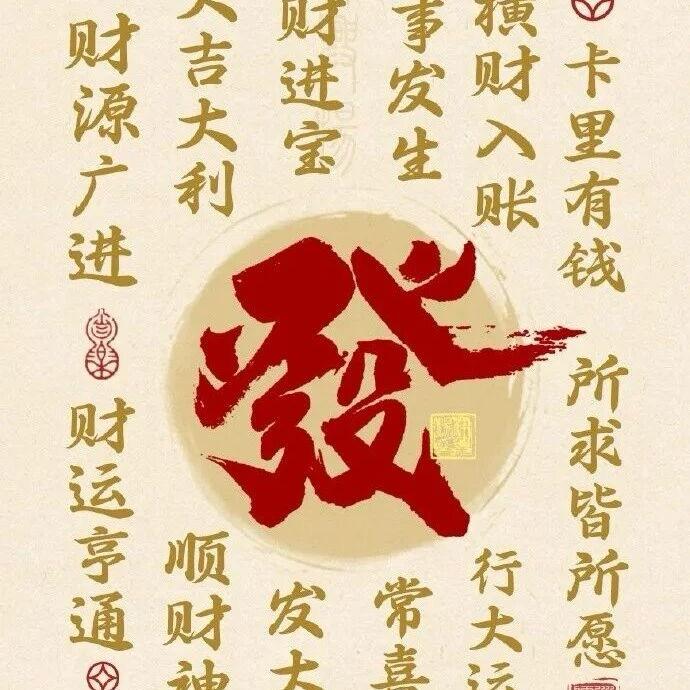 卡里有钱
横财入账
事发生
财进宝
大吉大利
财源广进
發
所求皆所愿
行大运
常喜
发大
顺财神
财运亨通